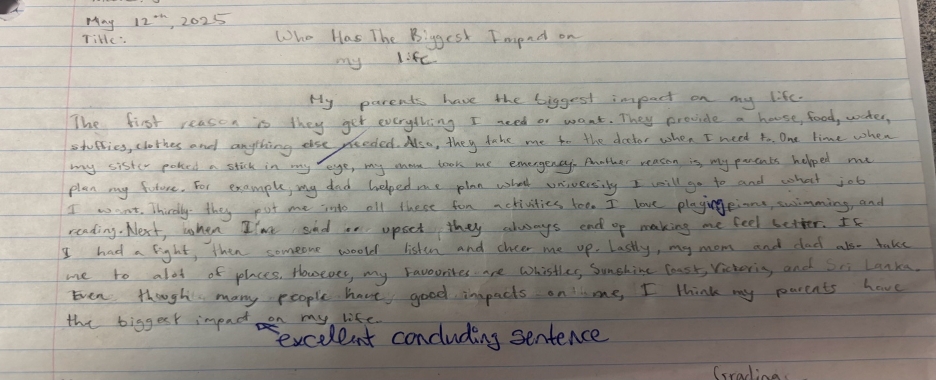 May 12th, 2025
Title: Who Has The Biggest Impact on
my life
My parents have the biggest impact on my life.
The first reason is they get everything I need or want. They provide a house, food, water,
stuffies, clothes and anything else needed. Also, they take me to the doctor when I need to. One time when
my sister poked a stick in my eye, my mom took me emergency. Another reason is my parents helped me
plan my future. For example, my dad helped me plan what university I will go to and what job
I want. Thirdly they put me into all these fun activities, too. I love playing piano, swimming, and
reading. Next, when I'm sad or upset, they always end up making me feel better. If
I had a fight, then someone would listen and cheer me up. Lastly, my mom and dad also take
me to alot of places. However, my favourites are Whistler, Sunshine Coast, Victoria, and Sri Lanka.
Even though many people have good impacts on me, I think my parents have
the biggest impact on my life.
excellent concluding sentence
Grading: